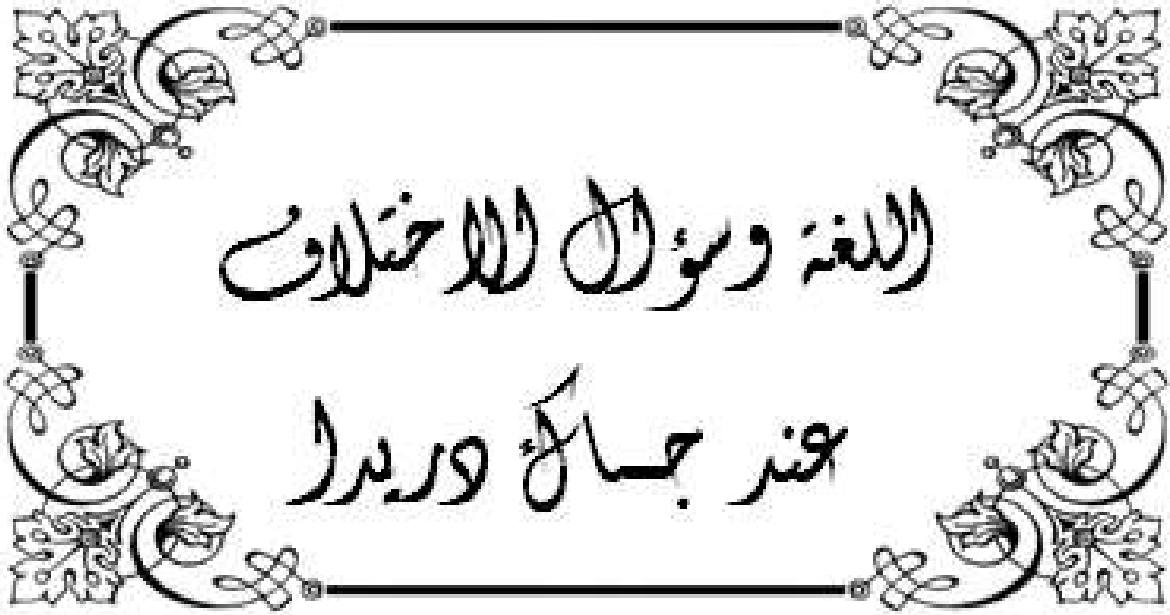 اللغة وسؤال الاختلاف
عند جاك دريدا